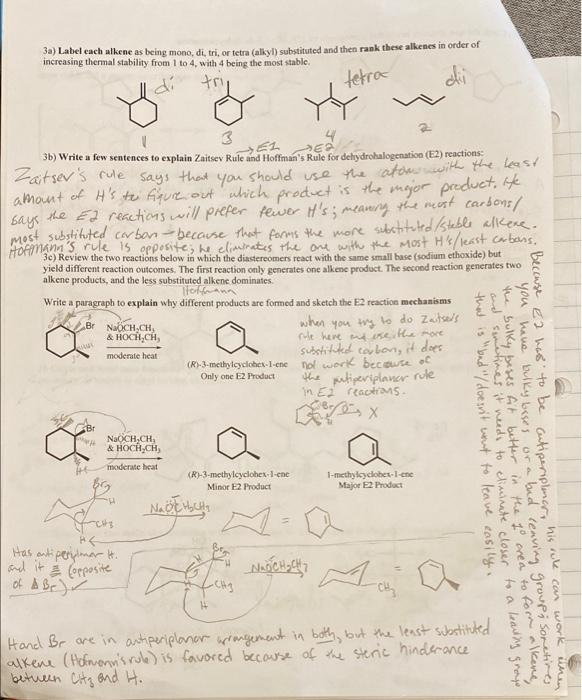 3a) Label each alkene as being mono, di, tri, or tetra (alkyl) substituted and then rank these alkenes in order of
increasing thermal stability from 1 to 4, with 4 being the most stable.
di tri tetra di
1 3 4 2
→E1 →E2
3b) Write a few sentences to explain Zaitsev Rule and Hoffman's Rule for dehydrohalogenation (E2) reactions:
Zaitsev's rule says that you should use the atom with the least
amount of H's to figure out which product is the major product. He
says the E2 reactions will prefer fewer H's; meaning the most carbons/
most substituted carbon - because that forms the more substituted/stable alkene.
Hoffmann's rule is opposite; he eliminates the one with the most H's/least carbons.
3c) Review the two reactions below in which the diastereomers react with the same small base (sodium ethoxide) but
yield different reaction outcomes. The first reaction only generates one alkene product. The second reaction generates two
alkene products, and the less substituted alkene dominates.
Hofmann
Write a paragraph to explain why different products are formed and sketch the E2 reaction mechanisms
Br NaOCH₂CH₃
& HOCH₂CH₃
moderate heat
(R)-3-methylcyclohex-1-ene
Only one E2 Product
when you try to do Zaitsev's
rule here and use the more
substituted carbon, it does
not work because of
the antiperiplanar rule
in E2 reactions.
Br X
Br NaOCH₂CH₃
& HOCH₂CH₃
moderate heat
(R)-3-methylcyclohex-1-ene
Minor E2 Product
1-methylcyclohex-1-ene
Major E2 Product
Because E2 has to be antiperiplanar, his rule can work when
you have bulky bases or a bad leaving group; sometimes
the bulky bases fit better in the 1° area to form alkene,
and sometimes it needs to eliminate closer to a leaving group
that is "bad"/doesn't want to leave easily.
Br H CH₃ H
NaOCH₂CH₃ =
Has antiperiplanar H.
and it (opposite
of Br)
Br H CH₃ H
NaOCH₂CH₃ CH₃ =
H and Br are in antiperiplanar arrangement in both, but the least substituted
alkene (Hofmann's rule) is favored because of the steric hinderance
between CH₃ and H.